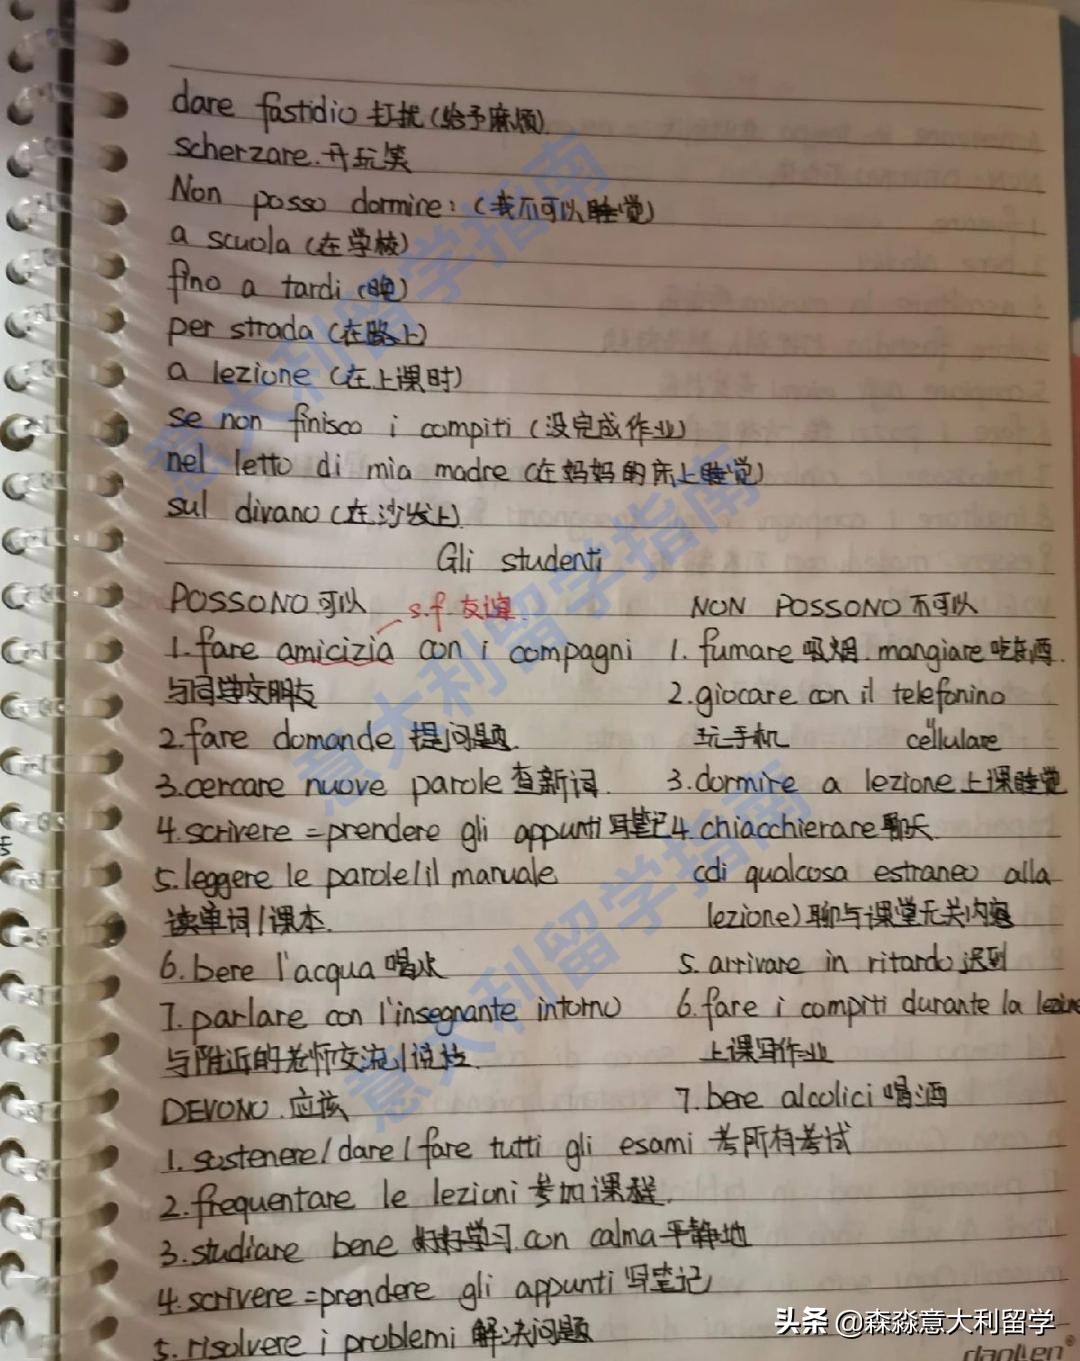 dare fastidio 打扰(给予麻烦)
scherzare.开玩笑
Non posso dormire:(我不可以睡觉)
a scuola (在学校)
fino a tardi (晚)
per strada (在路上)
a lezione (在上课时)
se non finisco i compiti (没完成作业)
nel letto di mia madre (在妈妈的床上睡觉)
sul divano (在沙发上)
Gli studenti
POSSONO 可以 s.f.友谊.
1.fare amicizia con i compagni
与同学交朋友
2.fare domande 提问题.
3.cercare nuove parole 查新词.
4.scrivere =prendere gli appunti 写笔记
5.leggere le parole/il manuale
读单词/课本.
6.bere l'acqua 喝水
7.parlare con l'insegnante intorno
与附近的老师交流/说话.
NON POSSONO 不可以
1.fumare 吸烟.mangiare 吃东西.
2.giocare con il telefonino
玩手机 cellulare
3.dormire a lezione 上课睡觉
4.chiacchierare 聊天.
(di qualcosa estraneo alla
lezione)聊与课堂无关内容
5.arrivare in ritardo 迟到
6.fare i compiti durante la lezione
上课写作业
7.bere alcolici 喝酒
DEVONO.应该
1.sostenere/dare/fare tutti gli esami 考所有考试
2.frequentare le lezioni 参加课程.
3.studiare bene 好好学习.con calma 平静地
4.scrivere =prendere gli appunti 写笔记
5.risolvere i problemi 解决问题
意大利留学指南
意大利留学指南
意大利留学指南
头条 @森淼意大利留学